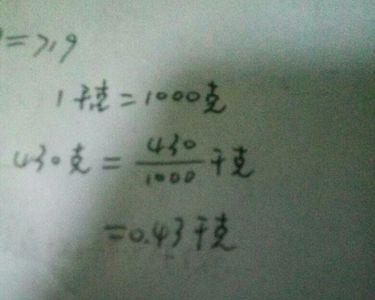 =7.9
1千克=1000克
430克=430/1000千克
=0.43千克